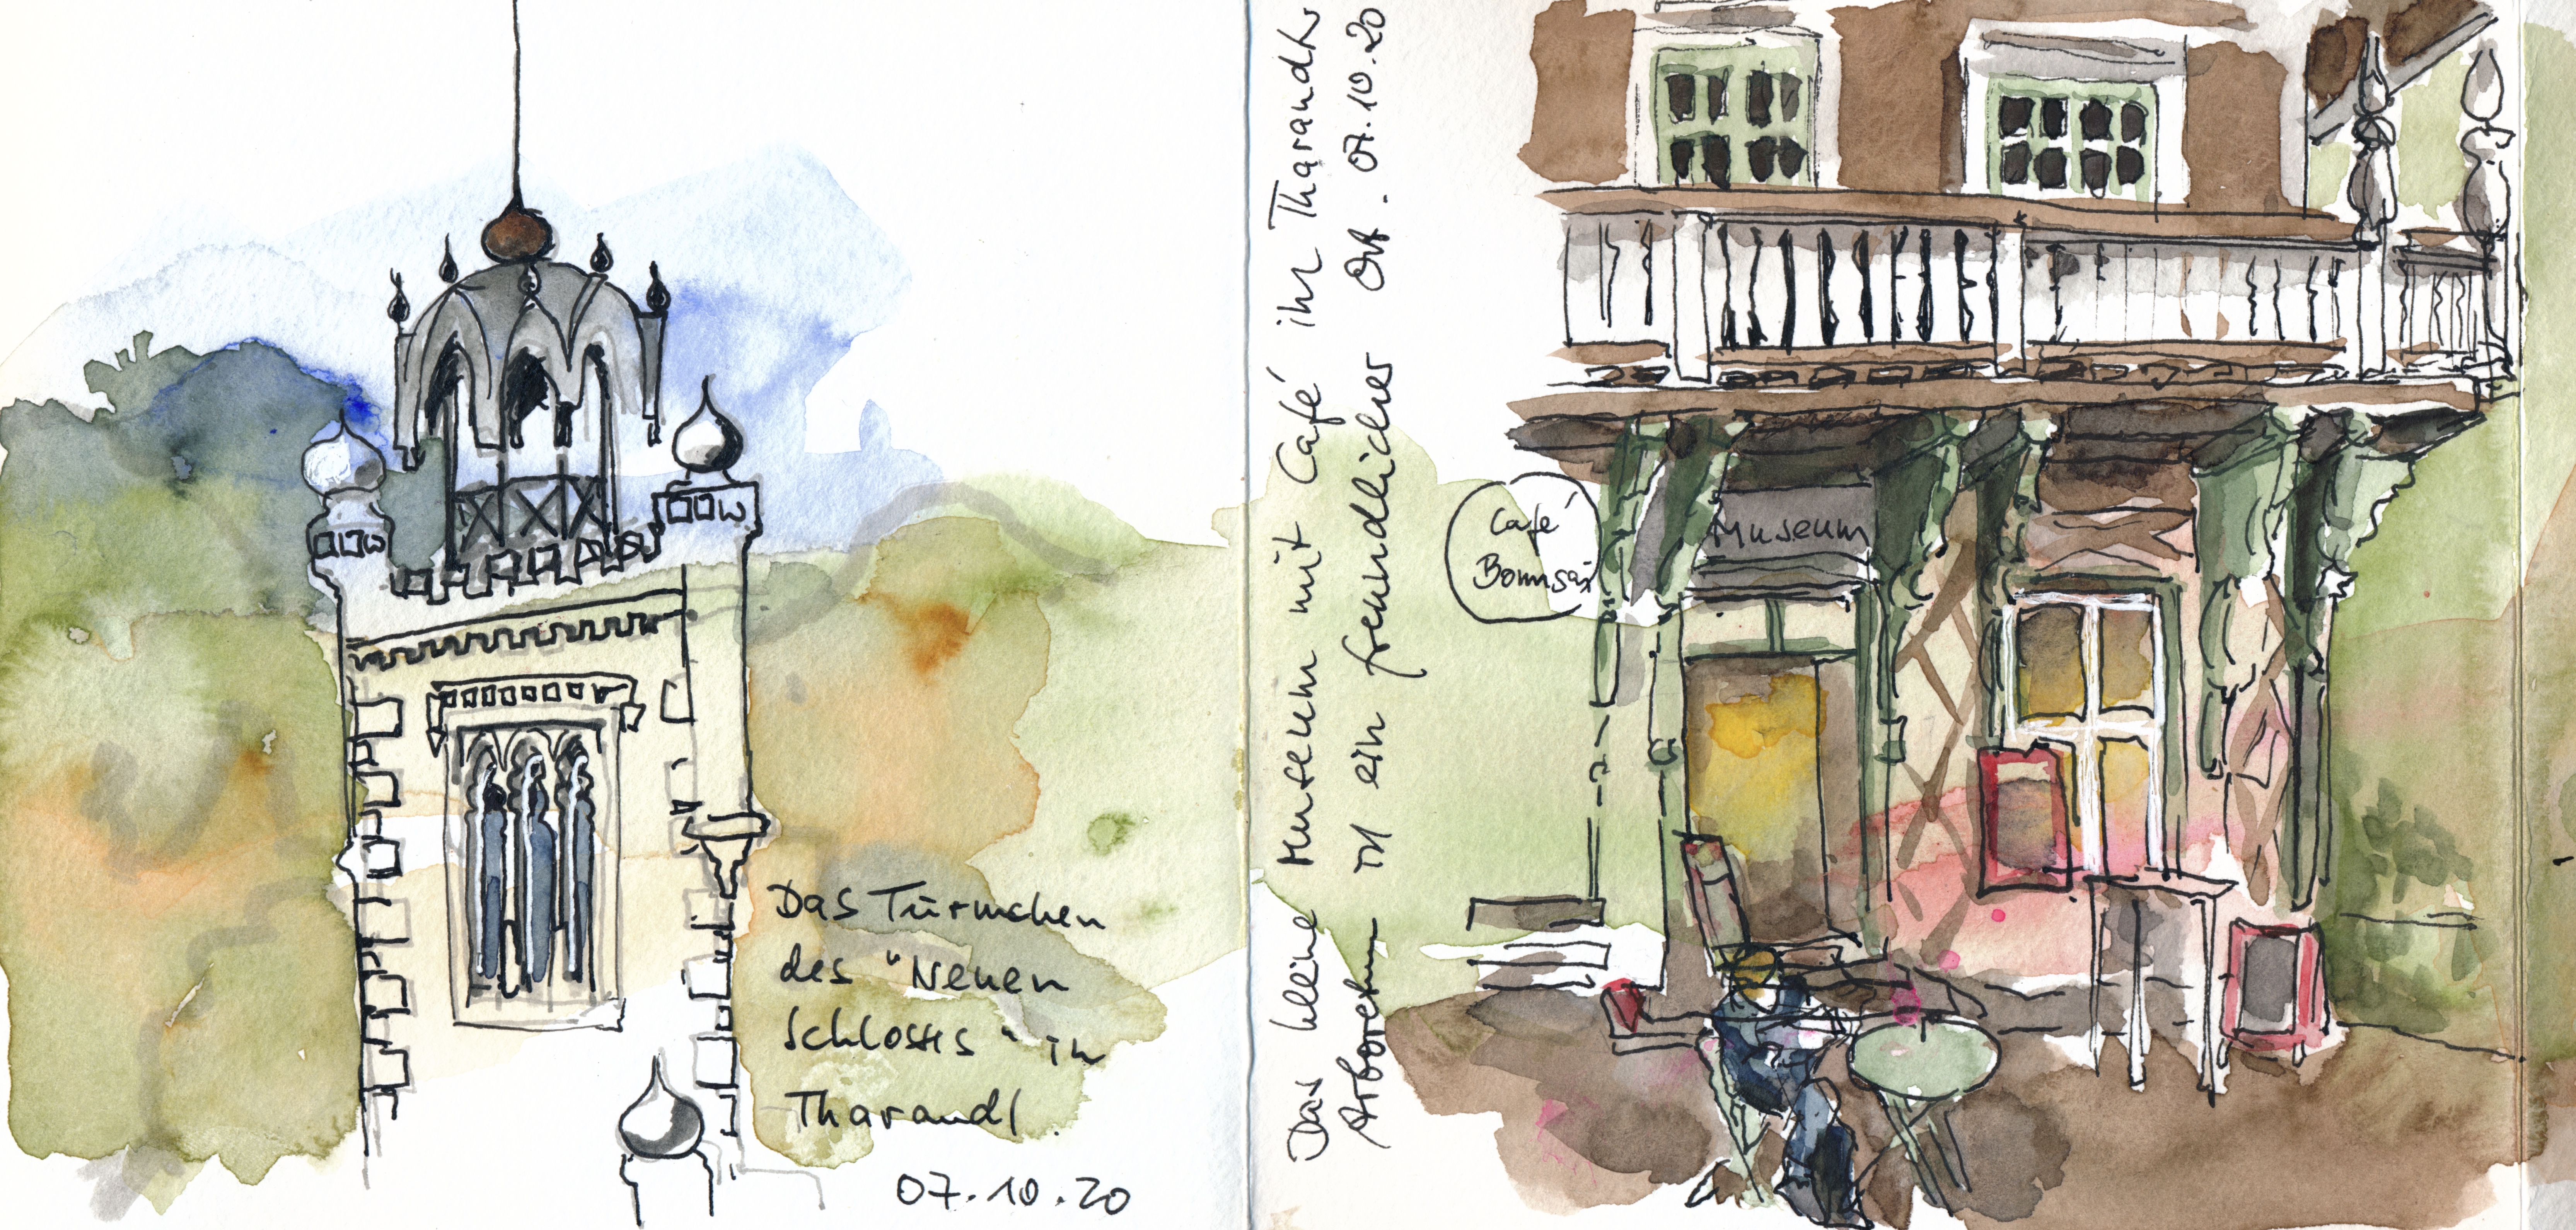 Das Türmchen
des "Neuen
Schlosses" in
Tharandt.
07.10.20
Das kleine Museum mit Café im Tharandter
Arboretum ist ein freundlicher Ort. 07.10.20
Café
Bonnsai
Museum